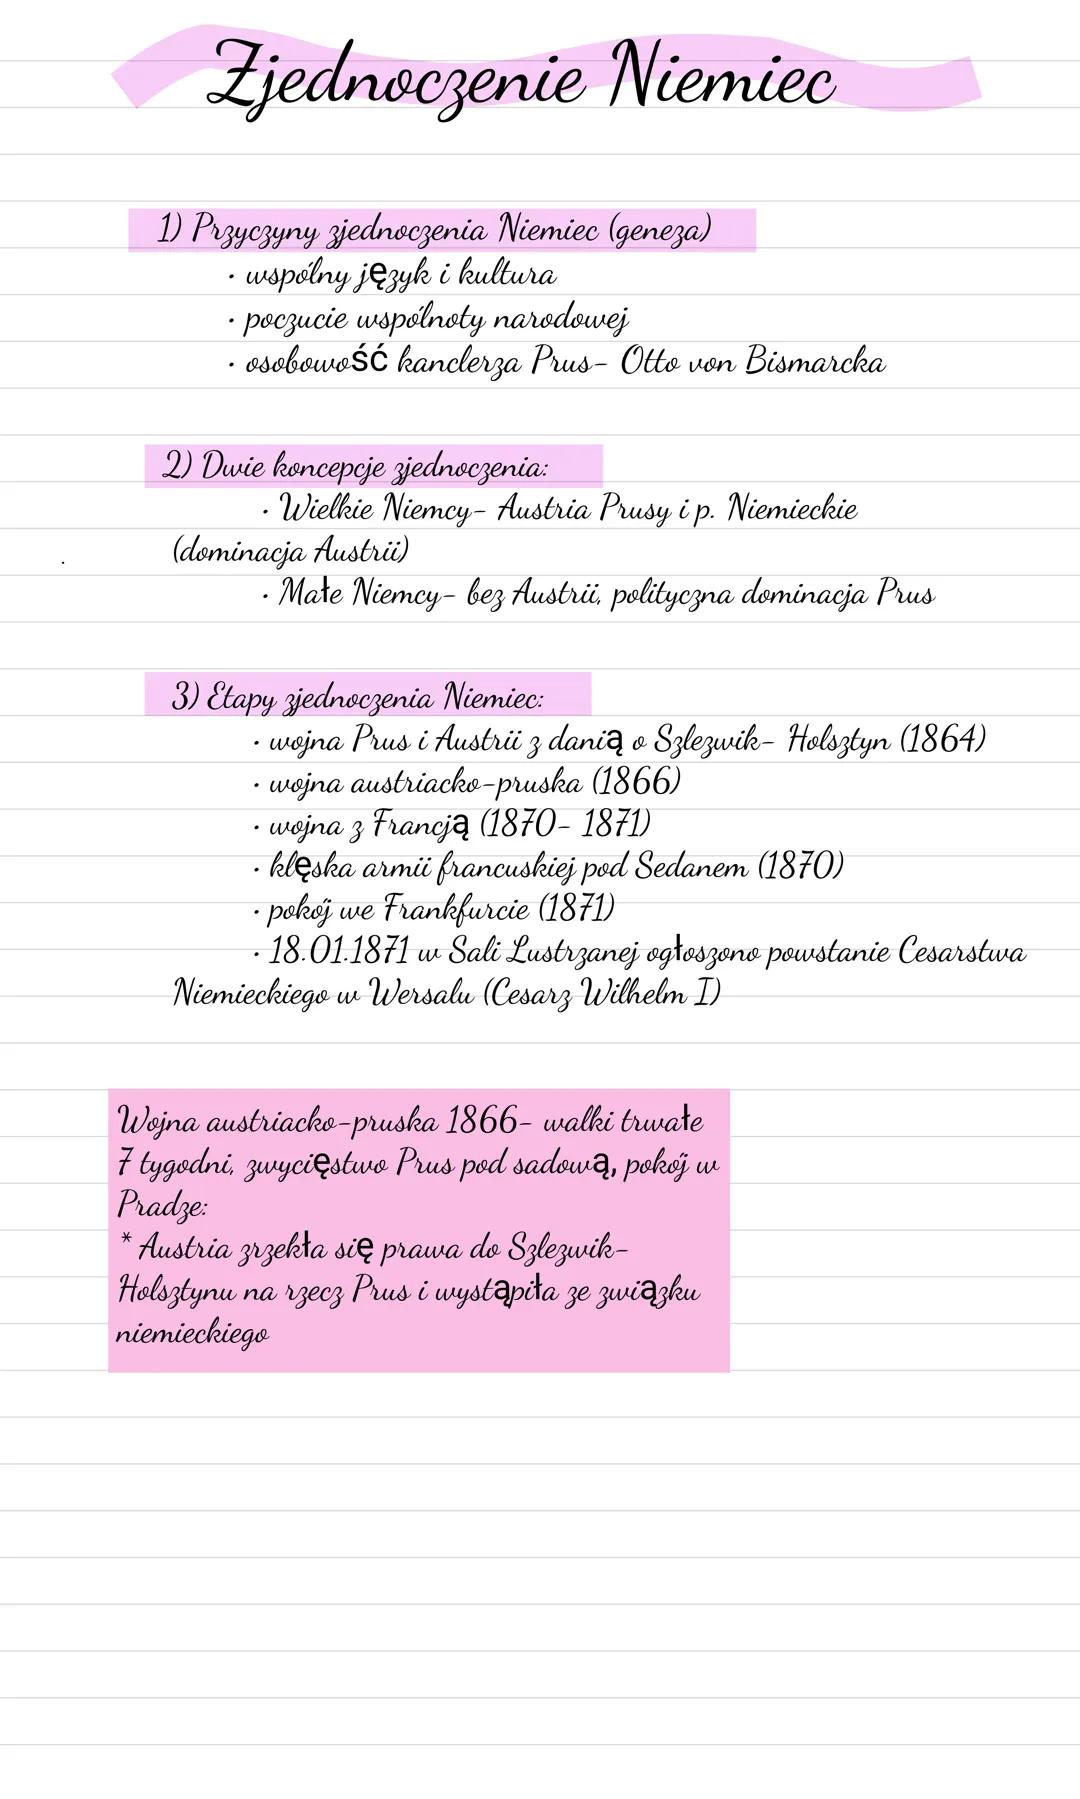 Zjednoczenie Niemiec
1) Przyczyny zjednoczenia Niemiec (geneza)
· wspólny język i kultura
· poczucie wspólnoty narodowej
· osobowość kanclerza Prus- Otto von Bismarcka
2) Dwie koncepcje zjednoczenia:
· Wielkie Niemcy- Austria Prusy i p. Niemieckie
(dominacja Austrii)
· Małe Niemcy- bez Austrii, polityczna dominacja Prus
3) Etapy zjednoczenia Niemiec:
· wojna Prus i Austrii z danią o Szlezwik- Holsztyn (1864)
· wojna austriacko-pruska (1866)
· wojna z Francją (1870- 1871)
· klęska armii francuskiej pod Sedanem (1870)
· pokój we Frankfurcie (1871)
· 18.01.1871 w Sali Lustrzanej ogłoszono powstanie Cesarstwa
Niemieckiego w Wersalu (Cesarz Wilhelm I)
Wojna austriacko-pruska 1866- walki trwałe
7 tygodni, zwycięstwo Prus pod sadową, pokój w
Pradze:
* Austria zrzekła się prawa do Szlezwik-
Holsztynu na rzecz Prus i wystąpiła ze związku
niemieckiego